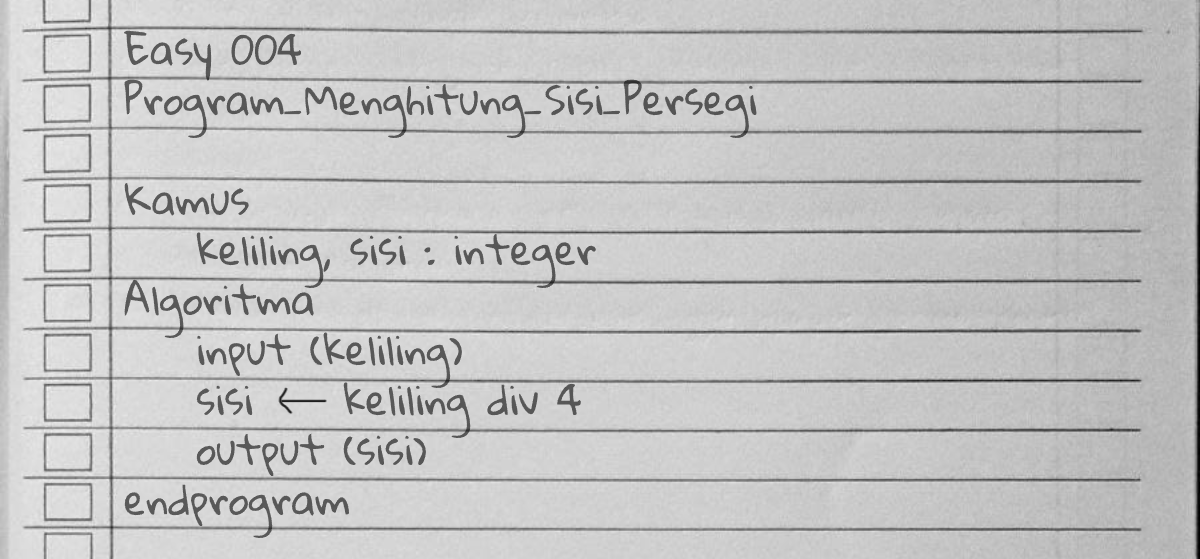 Easy 004
Program_Menghitung_Sisi_Persegi
Kamus
keliling, sisi : integer
Algoritma
input (keliling)
sisi ← keliling div 4
output (sisi)
endprogram